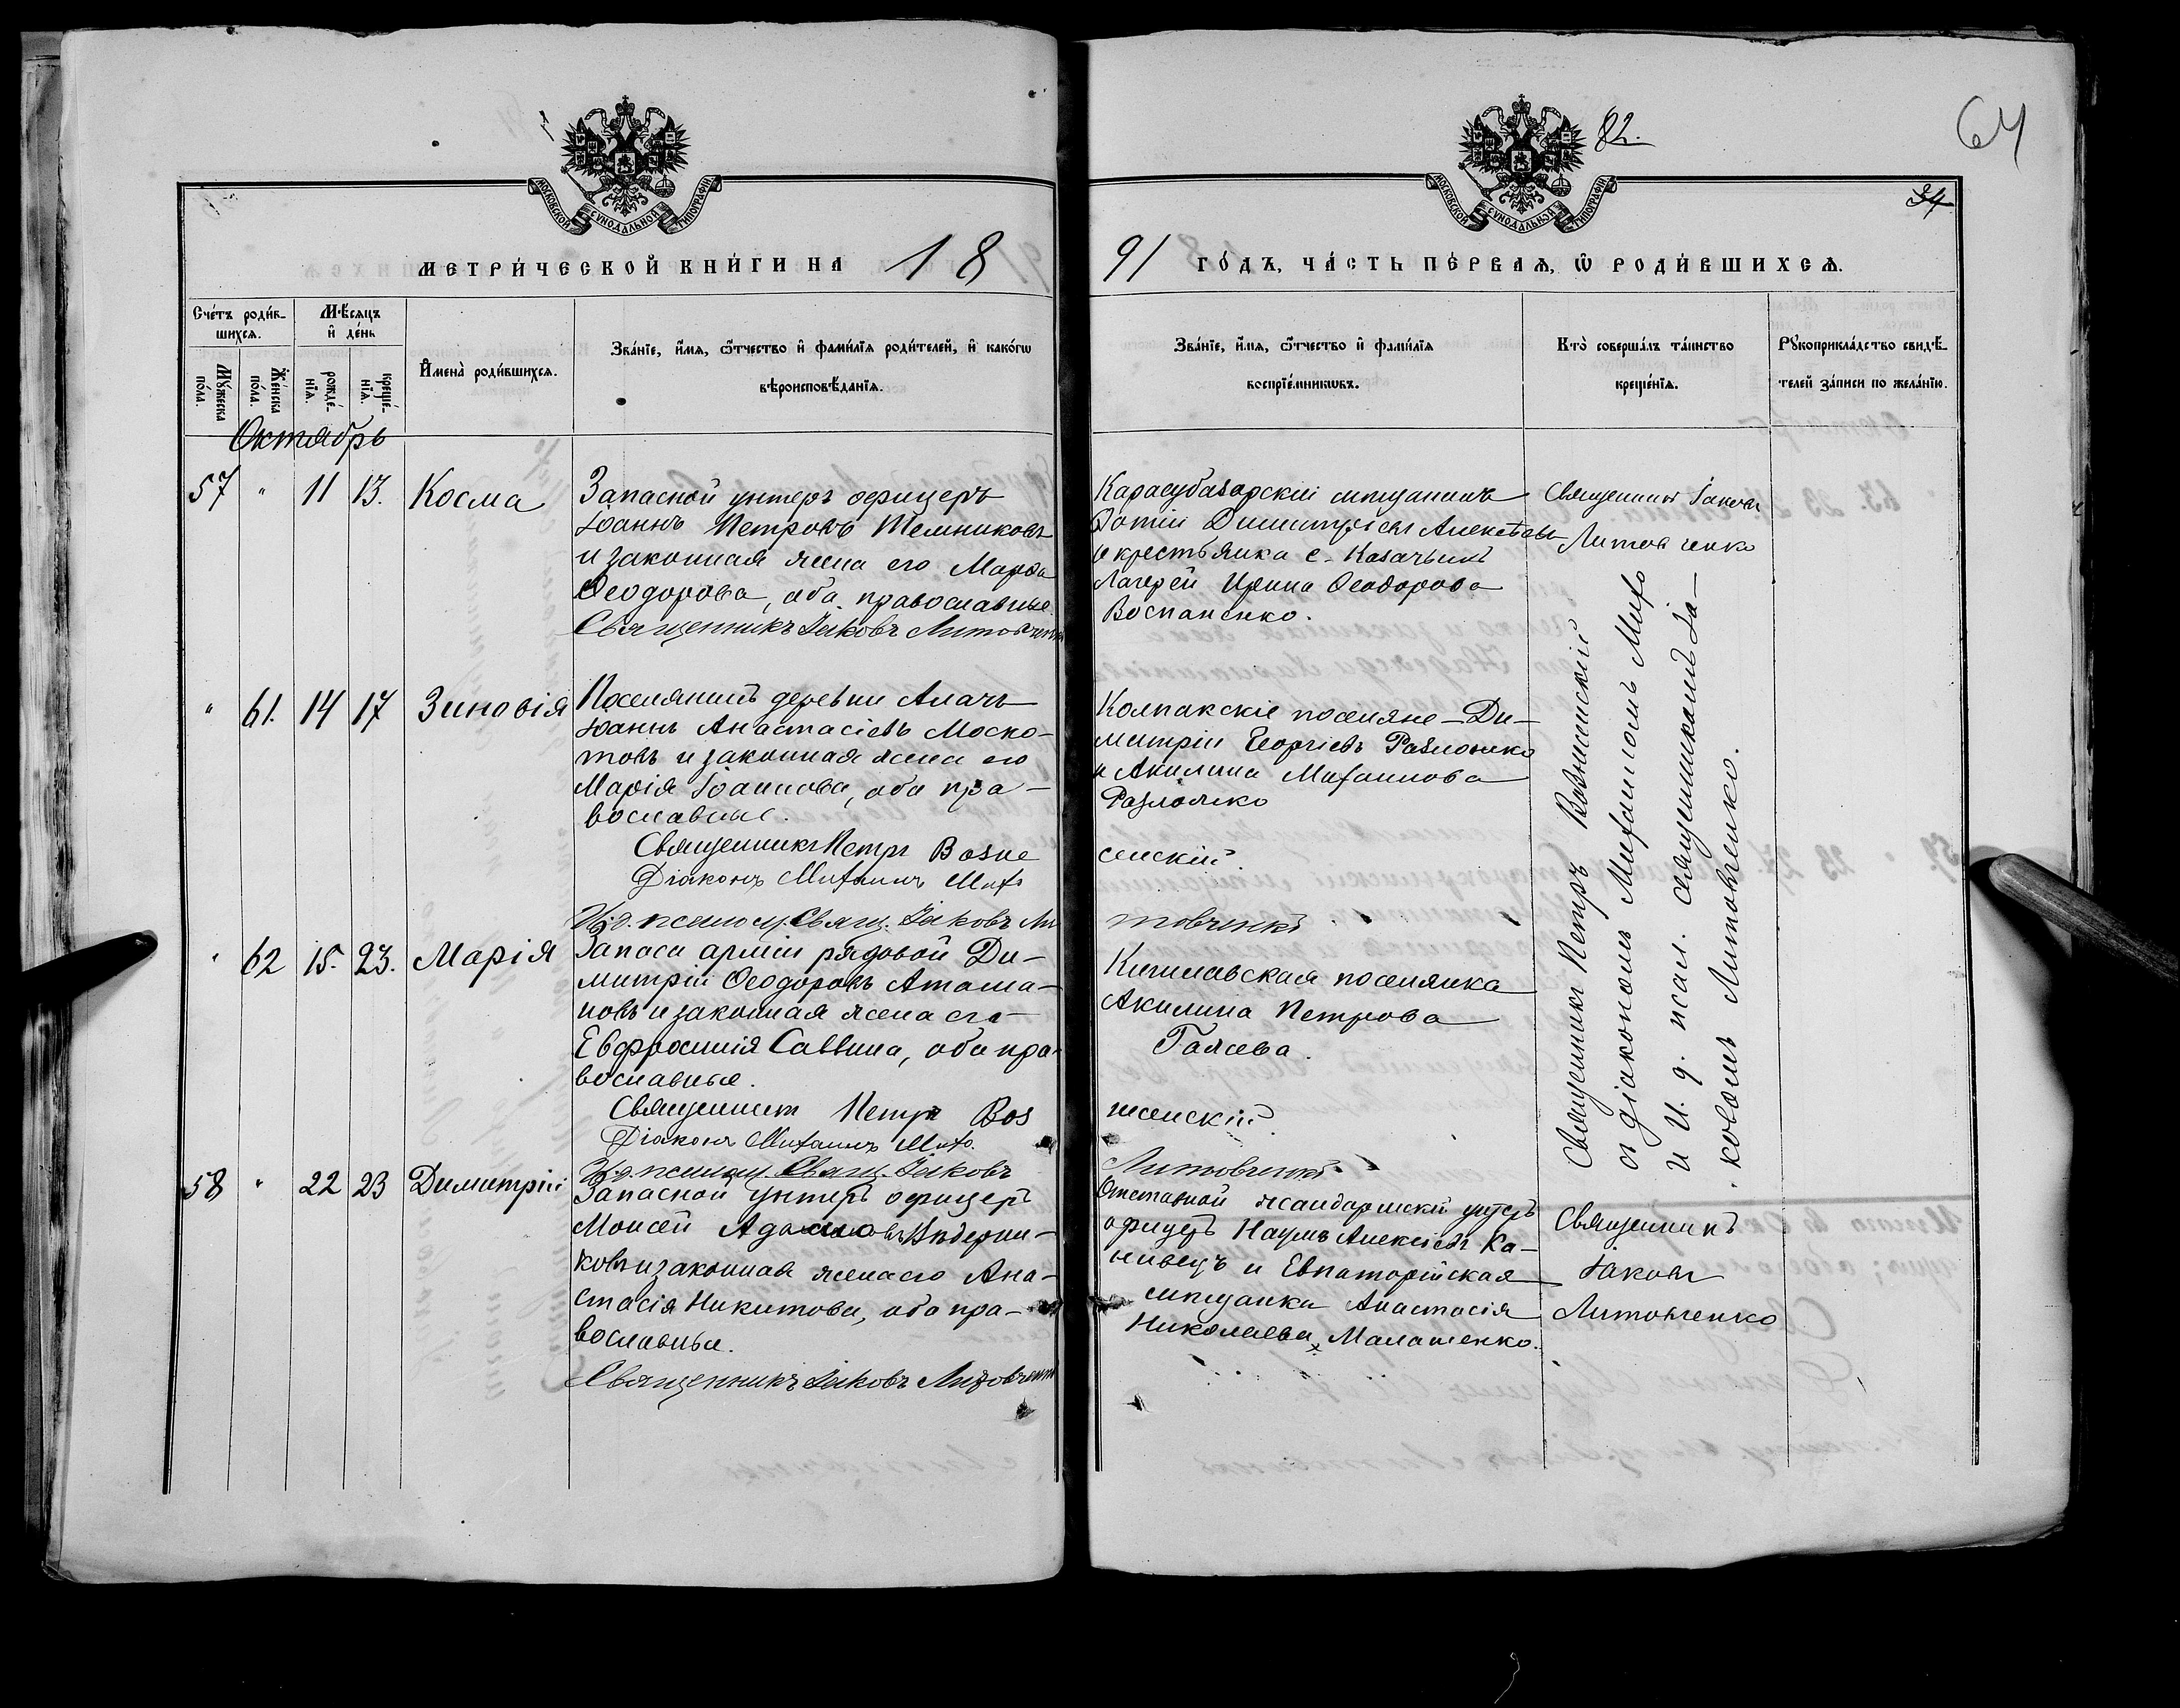 82.
64
34
МОСКОВСКОЙ СѴНОДАЛЬНОЙ ТИПОГРАФІИ
МОСКОВСКОЙ СѴНОДАЛЬНОЙ ТИПОГРАФІИ
МЕТРИ́ЧЕСКОЙ КНИ́ГИ НА 18
91 ГО́ДЪ, ЧА́СТЬ ПЕ́РВАѦ, Ѡ҆ РОДИ́ВШИХСѦ.
Сче́тъ роди́в-
шихсѧ.
Мꙋ́жеска по́ла.
Же́нска по́ла.
Мѣ́сѧцъ
и҆ де́нь
рожде́-
нїѧ.
креще́-
нїѧ.
И҆мена̀ роди́вшихсѧ.
Зва́нїе, и҆́мѧ, ѻ҆́тчество и҆ фами́лїѧ роди́телей, и҆ како́гѡ
вѣроисповѣ́данїѧ.
Зва́нїе, и҆́мѧ, ѻ҆́тчество и҆ фами́лїѧ
воспрїе́мникѡвъ.
Кто̀ соверша́лъ та́инство
креще́нїѧ.
Рꙋкоприкла́дство свидѣ́-
телей за́писи по жела́нїю.
Октябрь
57 " 11 13. Косма
Запасной унтеръ офицеръ
Іоаннъ Петровъ Темниковъ
и законная жена его Марфа
Ѳеодорова, оба православные.
Священникъ Іаковъ Литовченко
Карасубазарскій мѣщанинъ
Фотій Димитріевъ Алексѣевъ
и крестьянка с. Казачьихъ
Лагерей Ирина Ѳеодорова
Воспаненко.
Священникъ Іаковъ
Литовченко
" 61. 14 17 Зиновія
Поселянинъ деревни Алачъ
Іоаннъ Анастасіевъ Моско-
товъ и законная жена его
Марія Іоаннова, оба пра-
вославные.
Священникъ Петръ Возне
Діаконъ Михаилъ Михо
И. д. псаломщ. Свящ. Іаковъ Ли
Колпакскіе поселяне — Ди-
митрій Георгіевъ Разложко
и Акилина Михаилова
Разложко
сенскій.
товченко
Священникъ Петръ Вознесенскій
съ діакономъ Михаиломъ Михо
и И. д. псал. священникомъ Іа-
ковомъ Литовченко.
" 62 15. 23. Марія
Запаса арміи рядовой Ди-
митрій Ѳеодоровъ Атама-
новъ и законная жена его
Евфросинія Саввина, оба пра-
вославные.
Священникъ Петръ Воз
Діаконъ Михаилъ Михо.
И. д. псаломщ. Свящ. Іаковъ
Акилина Петрова
Галаева.
несенскій.
Литовченко
58 " 22 23 Димитрій
Запасной унтеръ офицеръ
Моисей Адамовъ
ковъ и законная жена его Ана-
стасія Никитова, оба пра-
вославные.
Священникъ Іаковъ Литовченко
Отставной жандармскій унтеръ
офицеръ Наумъ Алексіевъ Ка-
нивецъ и Евпаторійская
мѣщанка Анастасія
Николаева Малашенко.
Священникъ
Іаковъ
Литовченко